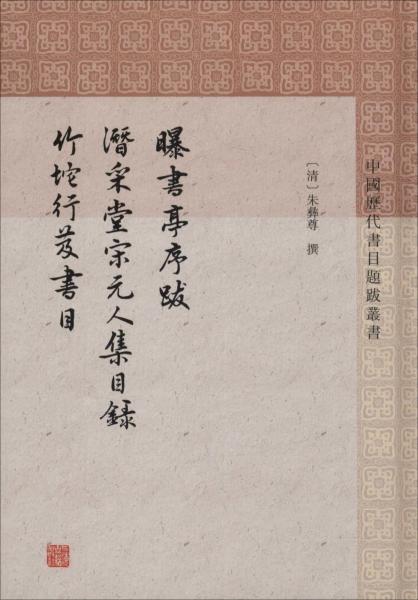 中國歷代書目題跋叢書
〔清〕朱彝尊 撰
曝書亭序跋
潛采堂宋元人集目錄
竹垞行笈書目